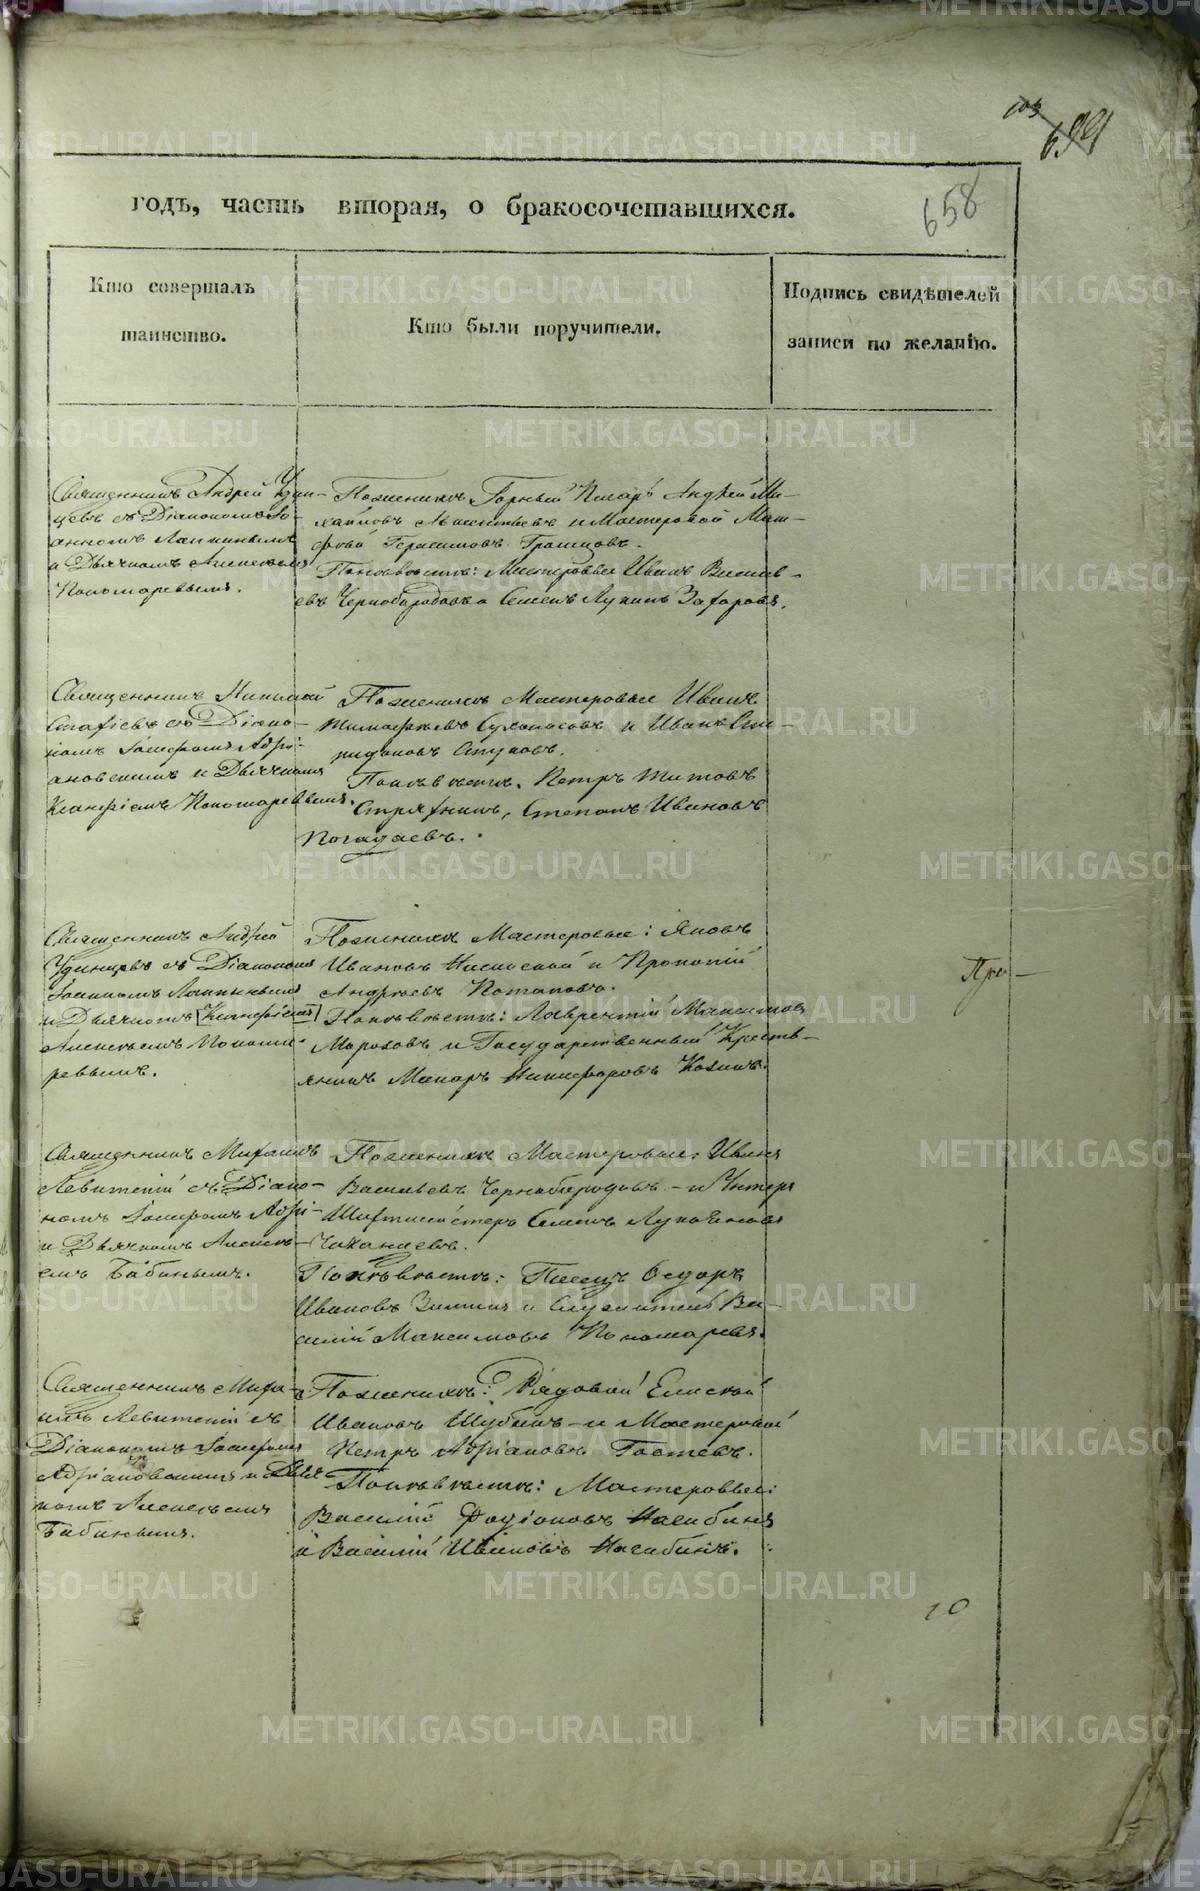 103
699
658
годъ, часть вторая, о бракосочетавшихся.
Кто совершалъ
таинство.
Кто были поручители.
Подпись свидѣтелей
записи по желанію.
Священникъ Андрей Удин-
цевъ съ Діакономъ Іо-
анномъ Лапинымъ
и Дьячкомъ Алексѣемъ
Пономаревымъ.
По женихѣ Горный Писарь Андрей Ми-
хайловъ и Мастеровой Мат-
фѣй Герасимовъ
По невѣстѣ: Мастеровые Иванъ Василь-
евъ Чернобородовъ и Семенъ Лукинъ Захаровъ.
Священникъ Николай
съ Діако-
номъ Іосифомъ Адрі-
ановскимъ и Дьячкомъ
Ксанфіемъ Пономаревымъ.
По женихѣ Мастеровые Иванъ
Тимофѣевъ Сухоносовъ и Иванъ Спи-
ридоновъ Стуковъ.
По невѣстѣ. Петръ Титовъ
Стряхнинъ, Степанъ Ивановъ
Погадаевъ.
Священникъ Андрей
Удинцевъ съ Діакономъ
Іоанномъ Лапинымъ
и Дьячкомъ [Ксанфіемъ]
Алексѣемъ Понома-
ревымъ.
По женихѣ Мастеровые: Яковъ
Ивановъ и Прокопій
Андреевъ Потаповъ.
По невѣстѣ: Лаврентій Максимовъ
Морозовъ и Государственный Кресть-
янинъ Макаръ Никифоровъ Козинъ.
Пре-
Священникъ Михаилъ
Левитскій съ Діако-
номъ Іосифомъ Адрі-
и Дьячкомъ Алексѣ-
емъ Бабинымъ.
По женихѣ Мастеровые: Иванъ
Васильевъ Чернобородовъ и Унтеръ
Шихтмейстеръ Семенъ Лукояновъ
По невѣстѣ: Писецъ Ѳедоръ
Ивановъ Зиминъ и Служитель Ва-
силій Максимовъ Пономаревъ.
Священникъ Миха-
илъ Левитскій съ
Діакономъ Іосифомъ
Адріановскимъ и Дьяч
комъ Алексѣемъ
Бабинымъ.
По женихѣ: Рядовой Елисей
Ивановъ Шубинъ и Мастеровой
Петръ Адріановъ Гостевъ.
По невѣстѣ: Мастеровые:
Василій Родіоновъ Нагибинъ
и Василій Ивановъ Нагибинъ.
10
METRIKI.GASO-URAL.RU